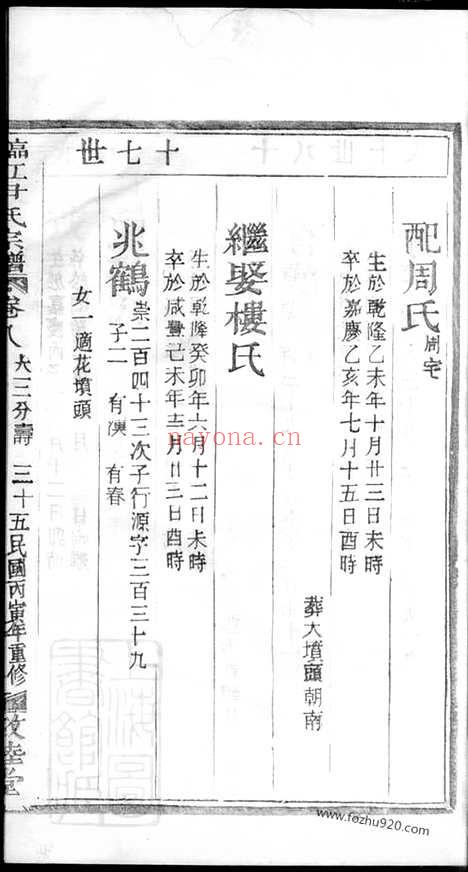 十七世
配周氏 周宅
生於乾隆乙未年十月廿三日未時
卒於嘉慶乙亥年七月十五日酉時
葬大墳頭朝南
繼娶樓氏
生於乾隆癸卯年六月十二日未時
卒於咸豐己未年三月廿三日酉時
兆鶴 崇二百四十三次子行源字三百三十九
子二 有澳 有春
女一適花墳頭
臨江尹氏宗譜 卷八 大三分壽 三十五 民國丙寅年重修 敦睦堂
nayona.cn
www.fozhu920.com